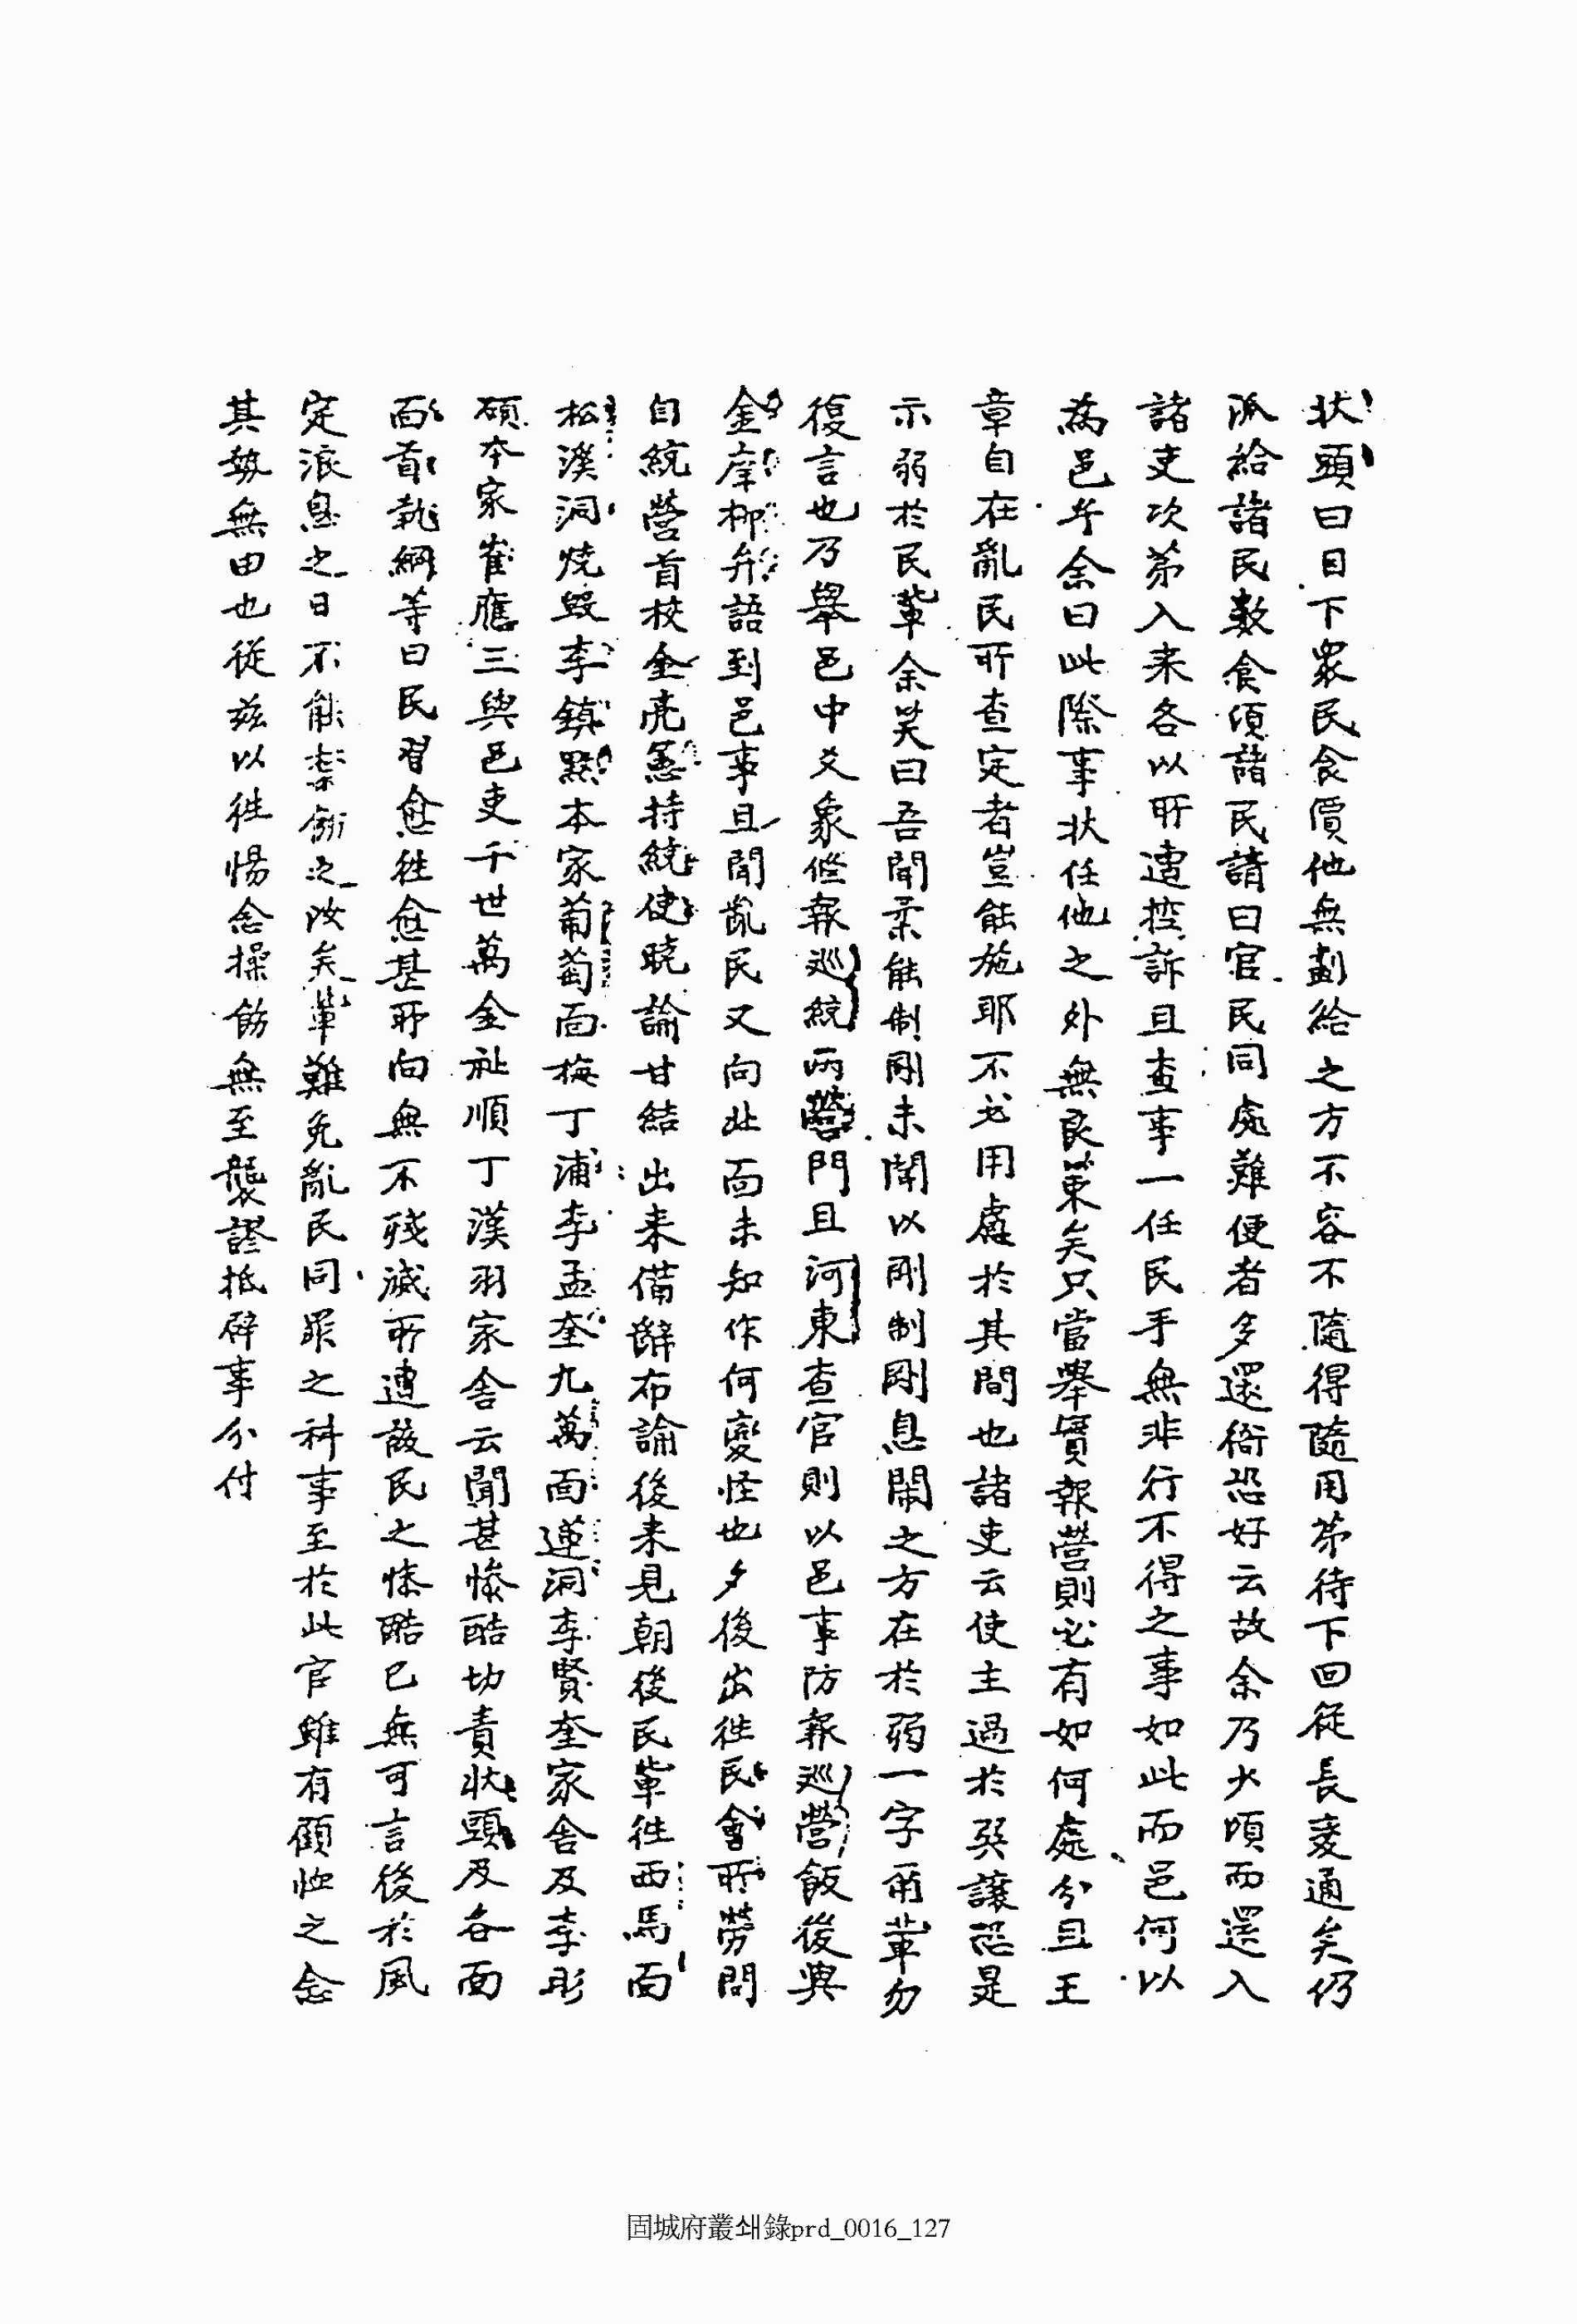 狀頭曰目下衆民食價他無劃給之方不容不隨得隨用苐待下回從長變通矣仍
派給諸民數食頃諸民請曰官民同處難便者多還衙恐好云故余乃大頃而還入
諸吏次苐入来各以所遭控訴且查事一任民手無非行不得之事如此而邑何以
為邑乎余曰此際事狀任他之外無良策矣只當舉實報營則必有如何處分且王
章自在亂民所查定者豈能施耶不必用慮於其間也諸吏云使主過於巽讓恐是
示弱於民輩余笑曰吾聞柔能制剛未聞以剛制剛息鬧之方在於弱一字甭輩勿
復言也乃舉邑中爻象修報巡統兩營門且河東查官則以邑事防報巡營飯後與
金庠柳弁語到邑事且聞亂民又向北面未知作何變怪也夕後出徃民會所勞問
自統營首校金亮蕙持統使曉諭甘結出来備辭布諭後来見朝後民輩徃西馬面
松溪洞燒毀李鎮㸃本家葡萄面梅丁浦李孟奎九萬面蓮洞李賢奎家舍及李彤
碩本家崔應三與邑吏千世萬全祉順丁漢羽家舍云聞甚惨酷切責狀頭及各面
面首執綱等曰民習愈徃愈甚所向無不殘滅所遭該民之惨酷已無可言後於風
定浪息之日不能禁飭之汝矣輩難免亂民同罪之科事至於此官雖有顧恤之念
其勢無由也從玆以徃惕念操飭無至襲謬抵辟事分付
固城府叢쇄錄prd_0016_127